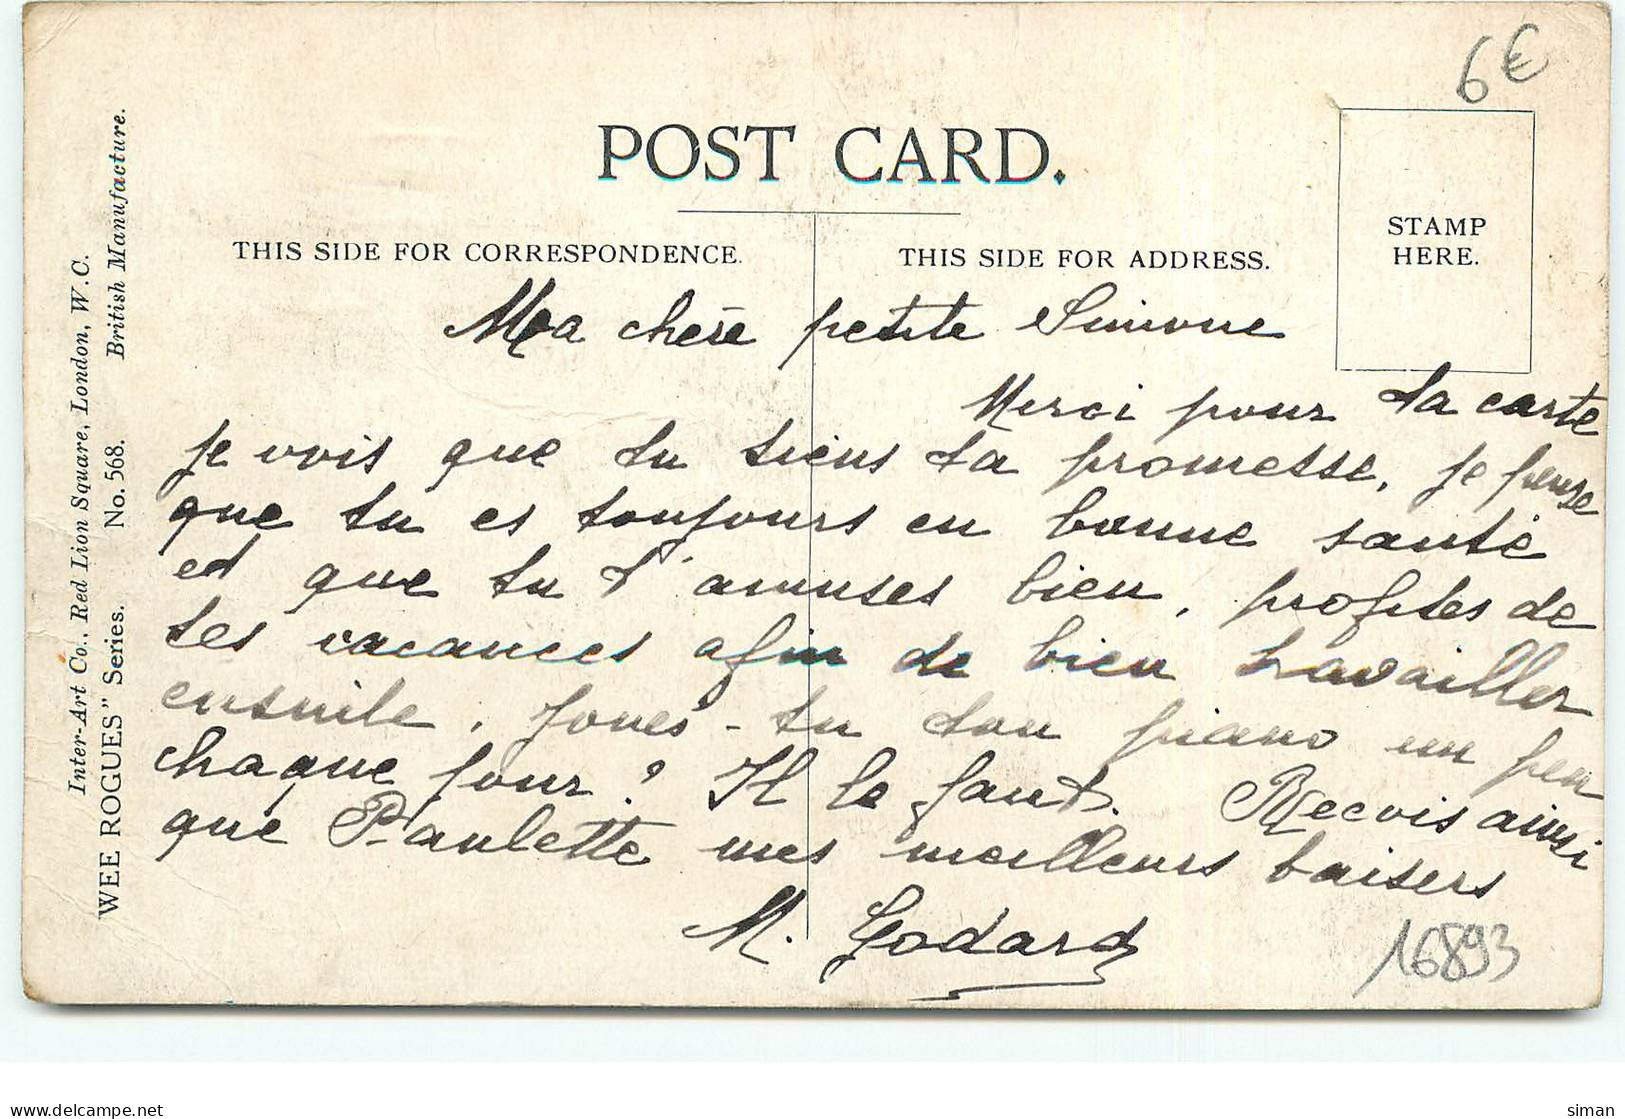 6€
POST CARD.
THIS SIDE FOR CORRESPONDENCE.
THIS SIDE FOR ADDRESS.
STAMP
HERE.
Inter-Art Co., Red Lion Square, London, W.C.
"WEE ROGUES" Series. No. 568. British Manufacture.
Ma chère petite Simone
Merci pour ta carte
je vois que tu tiens ta promesse, je pense
que tu es toujours en bonne santé
et que tu t'amuses bien, profites de
tes vacances afin de bien travailler
ensuite. Joues-tu ton piano un peu
chaque jour? Il le faut. Reçois ainsi
que Paulette mes meilleurs baisers
M. Godard
16893
delcampe.net
siman